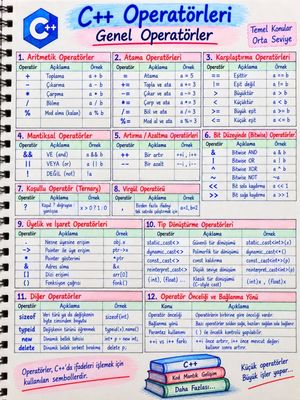 C++ Operatörleri
Genel Operatörler
Temel Konular
Orta Seviye
C++
1. Aritmetik Operatörler
Operatör Açıklama Örnek
+ Toplama a + b
- Çıkarma a - b
* Çarpma a * b
/ Bölme a / b
% Mod alma (kalan) a % b
2. Atama Operatörleri
Operatör Açıklama Örnek
= Atama a = 5
+= Topla ve ata a += 3
-= Çıkar ve ata a -= 3
*= Çarp ve ata a *= 3
/= Böl ve ata a /= 3
%= Mod al ve ata a %= 3
3. Karşılaştırma Operatörleri
Operatör Açıklama Örnek
== Eşittir a == b
!= Eşit değil a != b
> Büyüktür a > b
< Küçüktür a < b
>= Büyük eşit a >= b
<= Küçük eşit a <= b
4. Mantıksal Operatörler
Operatör Açıklama Örnek
&& VE (and) a && b
|| VEYA (or) a || b
! DEĞİL (not) !a
5. Artırma / Azaltma Operatörleri
Operatör Açıklama Örnek
++ Bir artır ++i , i++
-- Bir azalt --i , i--
6. Bit Düzeyinde (Bitwise) Operatörler
Operatör Açıklama Örnek
& Bitwise AND a & b
| Bitwise OR a | b
^ Bitwise XOR a ^ b
~ Bitwise NOT ~a
<< Sola kaydırma a << 1
>> Sağa kaydırma a >> 1
7. Koşullu Operatör (Ternary)
Operatör Açıklama Örnek
? : Koşul ? doğruysa x > 0 ? 1 : 0
: yanlışsa
8. Virgül Operatörü
Operatör Açıklama Örnek
, Birden fazla ifadeyi a=1, b=2
tek satırda çalıştırmak için
9. Üyelik ve İşaret Operatörleri
Operatör Açıklama Örnek
. Nesne üyesine erişim obj.x
-> Pointer ile üye erişim ptr->x
* Pointer gösterimi *ptr
& Adres alma &x
[] Dizi erişimi arr[0]
() Fonksiyon çağrısı fonk()
10. Tip Dönüştürme Operatörleri
Operatör Açıklama Örnek
static_cast<> Güvenli tür dönüşümü static_cast<int>(x)
dynamic_cast<> Polimorfik tür dönüşümü
const_cast<>
reinterpret_cast<> Düşük seviye dönüşüm
(int), (float)... Klasik tür dönüşümü (int)x, (float)x
(C-style cast)
11. Diğer Operatörler
Operatör Açıklama Örnek
sizeof Veri türü ya da değişkenin sizeof(int)
byte cinsinden boyutu
typeid Değişkenin türünü öğrenmek typeid(x).name()
new Dinamik bellek ayırma int* p = new int;
delete Dinamik bellek serbest bırakma delete p;
12. Operatör Önceliği ve Bağlanma Yönü
Konu Açıklama
Operatör önceliği Operatörlerin birbirine göre önceliği vardır.
Bağlanma yönü Bazı operatörler soldan sağa, bazıları sağdan sola bağlanır.
Parantez kullanımı ( ) ile öncelik kontrolü yapılabilir.
++i vs i++ farkı ++i önce artırır, i++ önce mevcut değeri
kullanır sonra artırır.
Operatörler, C++'da ifadeleri işlemek için
kullanılan sembollerdir.
C++
Kod Mantık Gelişim
Daha Fazlası...
Küçük operatörler
Büyük işler yapar...